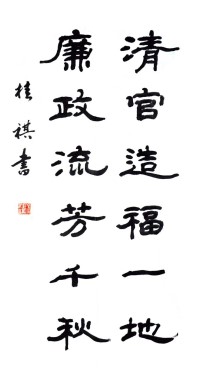 清官造福一地
廉政流芳千秋
桂祺書